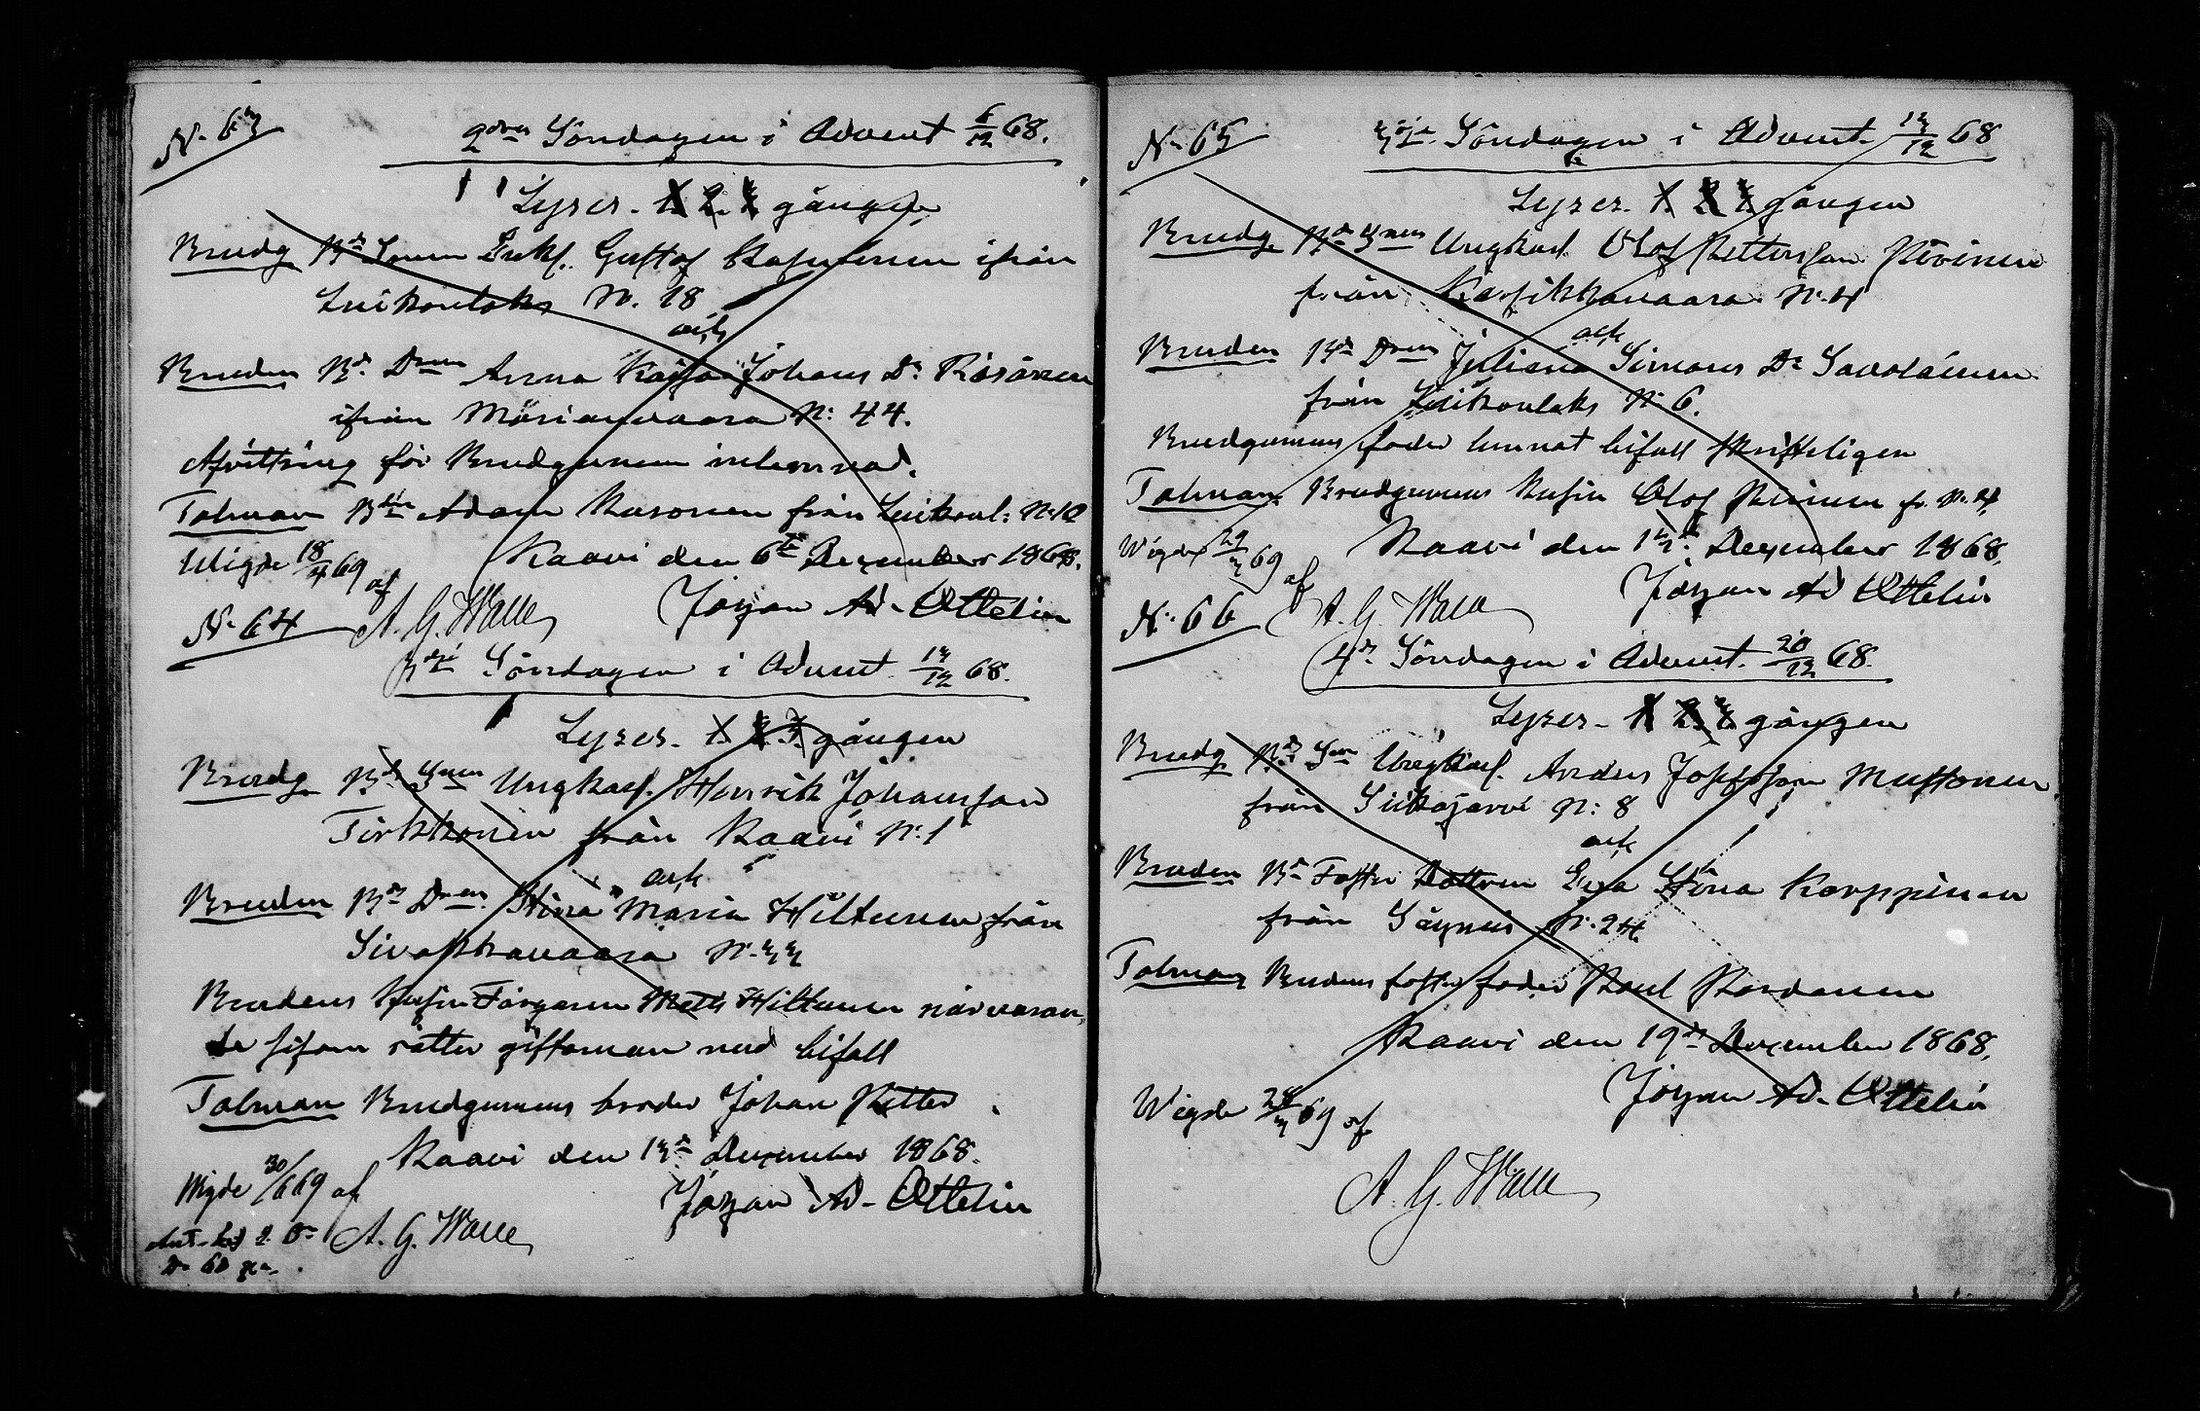 N. 63
2dra Söndagen i Advent 6/12 68.
Lyses. 1. 2. 3. gången
Brudg Bde Sonen Enkl. Gustaf ifrån
Luikonlaks N. 18
och
Bruden Bde Dren Anna Kajsa Johans Dr Räsänen
ifrån Märjanvaara N: 44.
Afvittring för Brudgummen inlemnad.
Talman Bde Adam Kasonen från Luikonl: N:12
Wigde 18/4 69 af Kaavi den 6te December 1868.
A. G. Walle Johan Ad. Ottelin
N. 64
3dje Söndagen i Advent 13/12 68.
Lyses. 1. 2. 3. gången
Brudg Bde Snen Ungkarl. Henrik Johansson
Tirkkonen från Kaavi N:1
och
Bruden Bde Dren Stina Maria Hiltunen från
Sivakkavaara N. 33
Brudens Kusin Färgaren Mats Hiltunen närvaran,
de såsom rätter giftoman med bifall
Talman Brudgumens broder Johan Petter
Kaavi den 13de December 1868.
Wigde 30/6 69 af Johan Ad. Ottelin
A. G. Walle
Dr 60 pn.
N. 65
3dje Söndagen i Advent 13/12 68
Lyses. 1. 2. 3. gången
Brudg. Bde Snen Ungkarl. Olof Pettersson Piironen
från Karsikkavaara N. 4
och
Bruden Bde Dren Juliana Simons Dr Savolainen
från Luikonlaks N. 6.
Brudgumens fader lemnat bifall skrifteligen
Talman Brudgumens Kusin Olof Piironen fr. N. 4,
Wigde 29/3 69 af Kaavi den 13de December 1868.
A. G. Walle Johan Ad Ottelin
N. 66
4de Söndagen i Advent. 20/12 68.
Lyses. 1. 2. 3. gången
Brudg Bde Sn Ungkarl. Anders Josefsson Mustonen
från Siikajärvi N: 8
och
Bruden Bde Foster Dottren Eva Stina Karppinen
från Säyneis N. 24.
Talman Brudens foster fader Paul Pardanen
Kaavi den 19de December 1868.
Johan Ad. Ottelin
Wigde 28/3 69 af
A. G. Walle